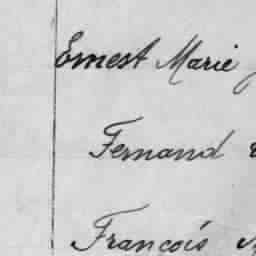 Ernest Marie
Fernand
Francois